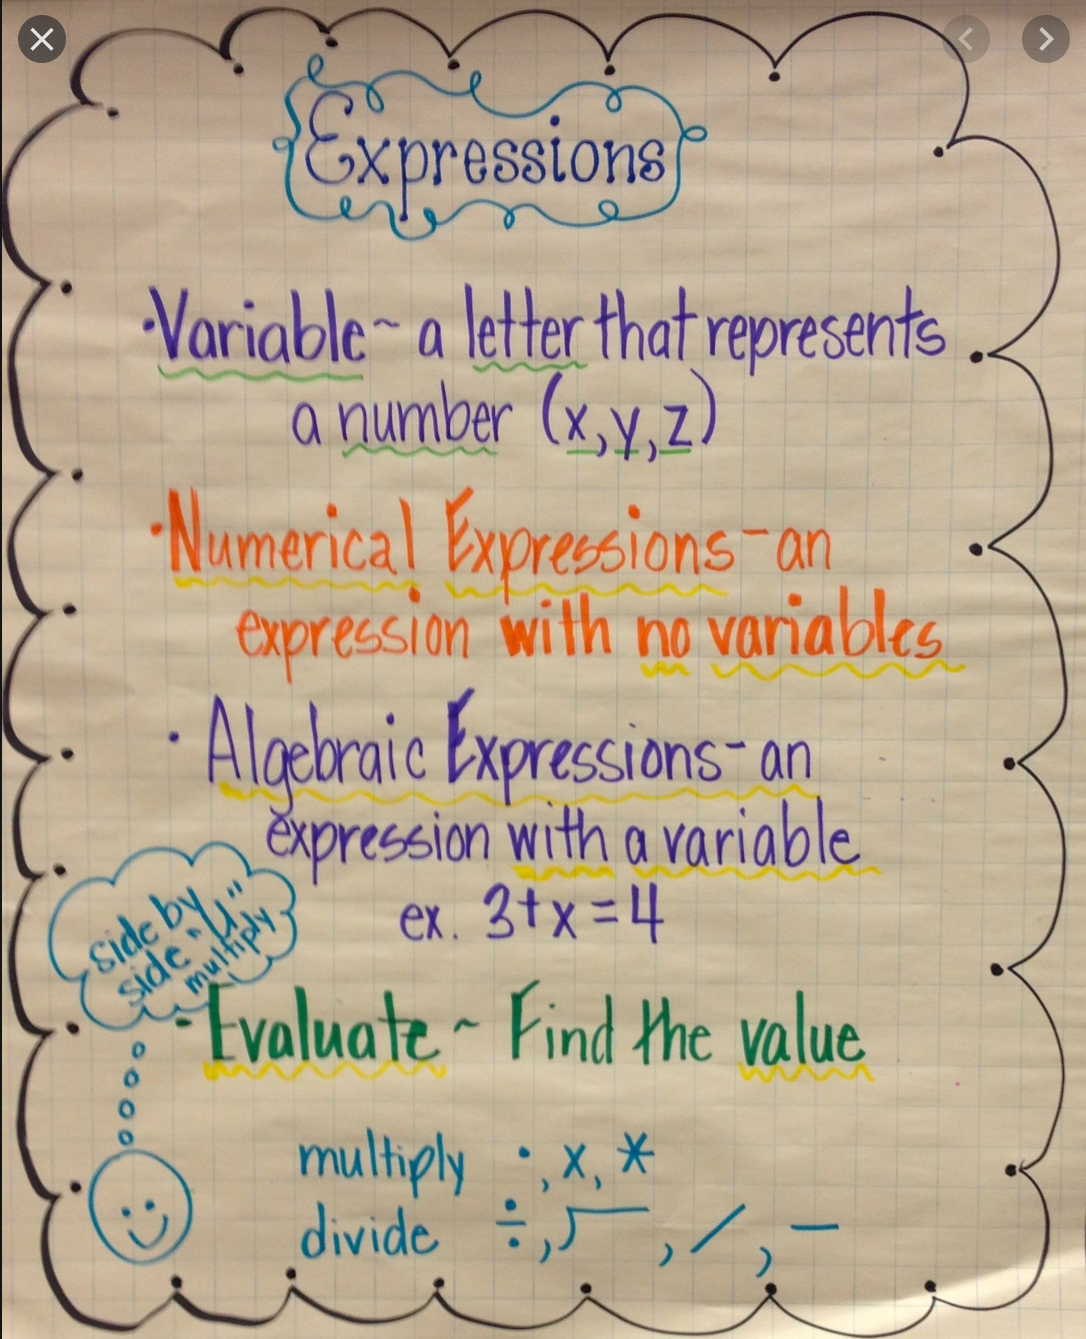 Expressions
·Variable ~ a letter that represents
a number (x, y, z)
·Numerical Expressions - an
expression with no variables
· Algebraic Expressions - an
expression with a variable
ex. 3+x=4
side by
side "U"
multiply
- Evaluate ~ Find the value
multiply ·, x, *
divide ÷, ⟌, /, —